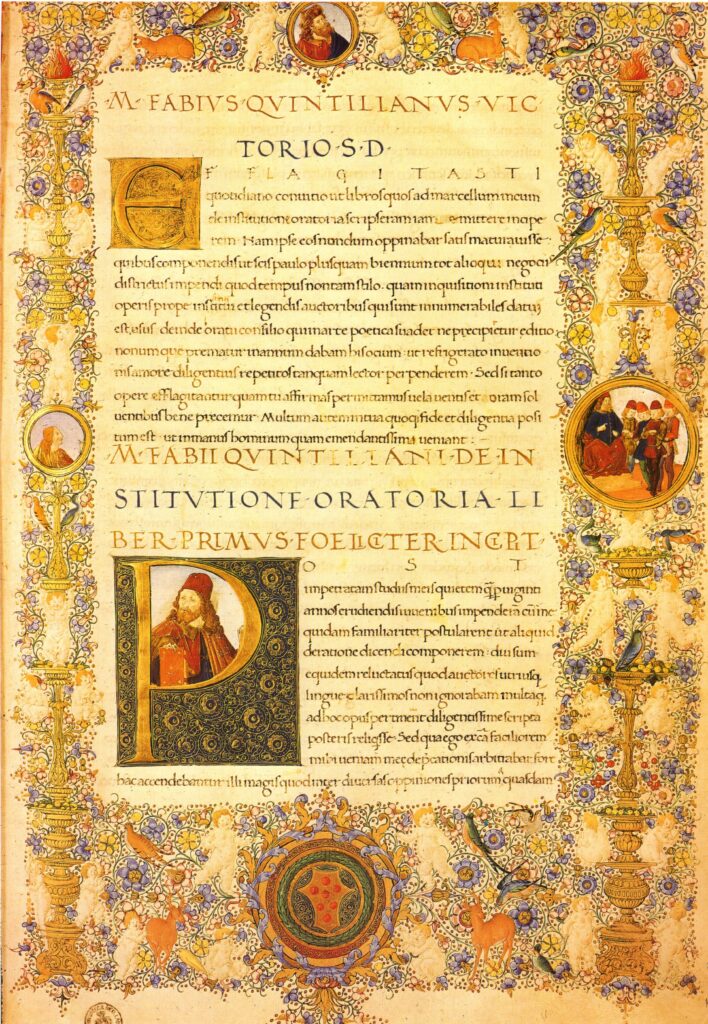 M·FABIVS·QVINTILIANVS·VIC
TORIO·S·D·
EFFLAGITASTI
quotidiano convitio ut libros quos ad marcellum meum
de institutione oratoria scripseram iam emittere incipe
rem· Nam ipse eos nondum oppinabar satis maturuisse·
quibus componendis ut scis paulo plus quam biennium tot alioqui negociis
districtus impendi quod tempus non tam stilo· quam inquisitioni instituti
operis prope infiniti et legendis auctoribus qui sunt innumerabiles datum
est· usus deinde oratii consilio qui in arte poetica suadet ne precipitetur editio
nonumque prematur in annum dabam his ocium· ut refrigerato inventio
nis amore diligentius repetitos tanquam lector perpenderem· Sed si tanto
opere efflagitantur quam tu affirmas permittamus vela ventis et oram sol
ventibus bene precemur· Multum autem in tua quoque fide et diligentia posi
tum est· ut in manus hominum quam emendatissimi veniant :
M·FABII QVINTILIANI·DE IN
STITVTIONE·ORATORIA·LI
BER·PRIMVS·FOELICITER·INCIPIT·
POST
impetratam studiis meis quietem q̃ per viginti
annos erudiendis iuvenibus impenderã cũ me
quidam familiariter postularent ut aliquid
de ratione dicendi componerem: diu sum
equidem reluctatus quod auctores utriusq;
lingue clarissimos non ignorabam multa q̃
ad hoc opus pertinent diligentissime scripta
posteris reliq̃sse· Sed qua ego ex cã faciliorem
mihi veniam mee dep̃cationis arbitrabar fore
hac accendebantur illi magis quod inter diversas oppiniones priorum quasdam